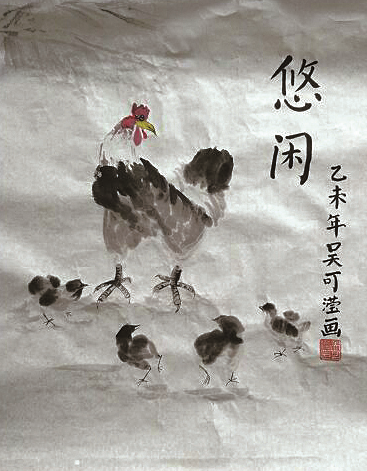 悠闲
乙未年吴可滢画